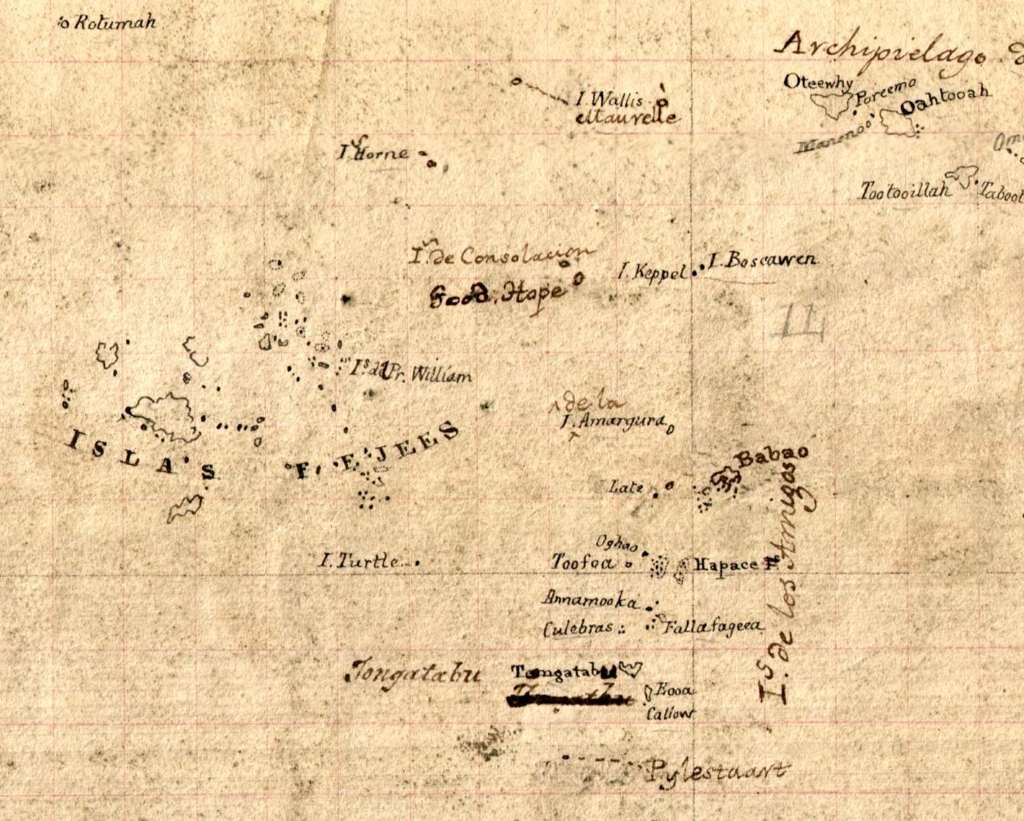 Rotumah
Archipielago d
Oteewhy
Poreemo
Oahtooah
Manono
I. Wallis
ó Maurelle
Is Horne
Tootooillah
Taboot
Is. de Consolacion
Good. Hope
I. Keppel
I. Boscawen
14
Is de Pr. William
de la
I. Amargura
ISLAS FEJEES
Babao
Late
Is de los Amigos
I. Turtle
Oghao
Toofoa
Hapace Is
Annamooka
Culebras
Fallafageea
Tongatabu
Tongatabu
Eooa
Callow
Pylestaart